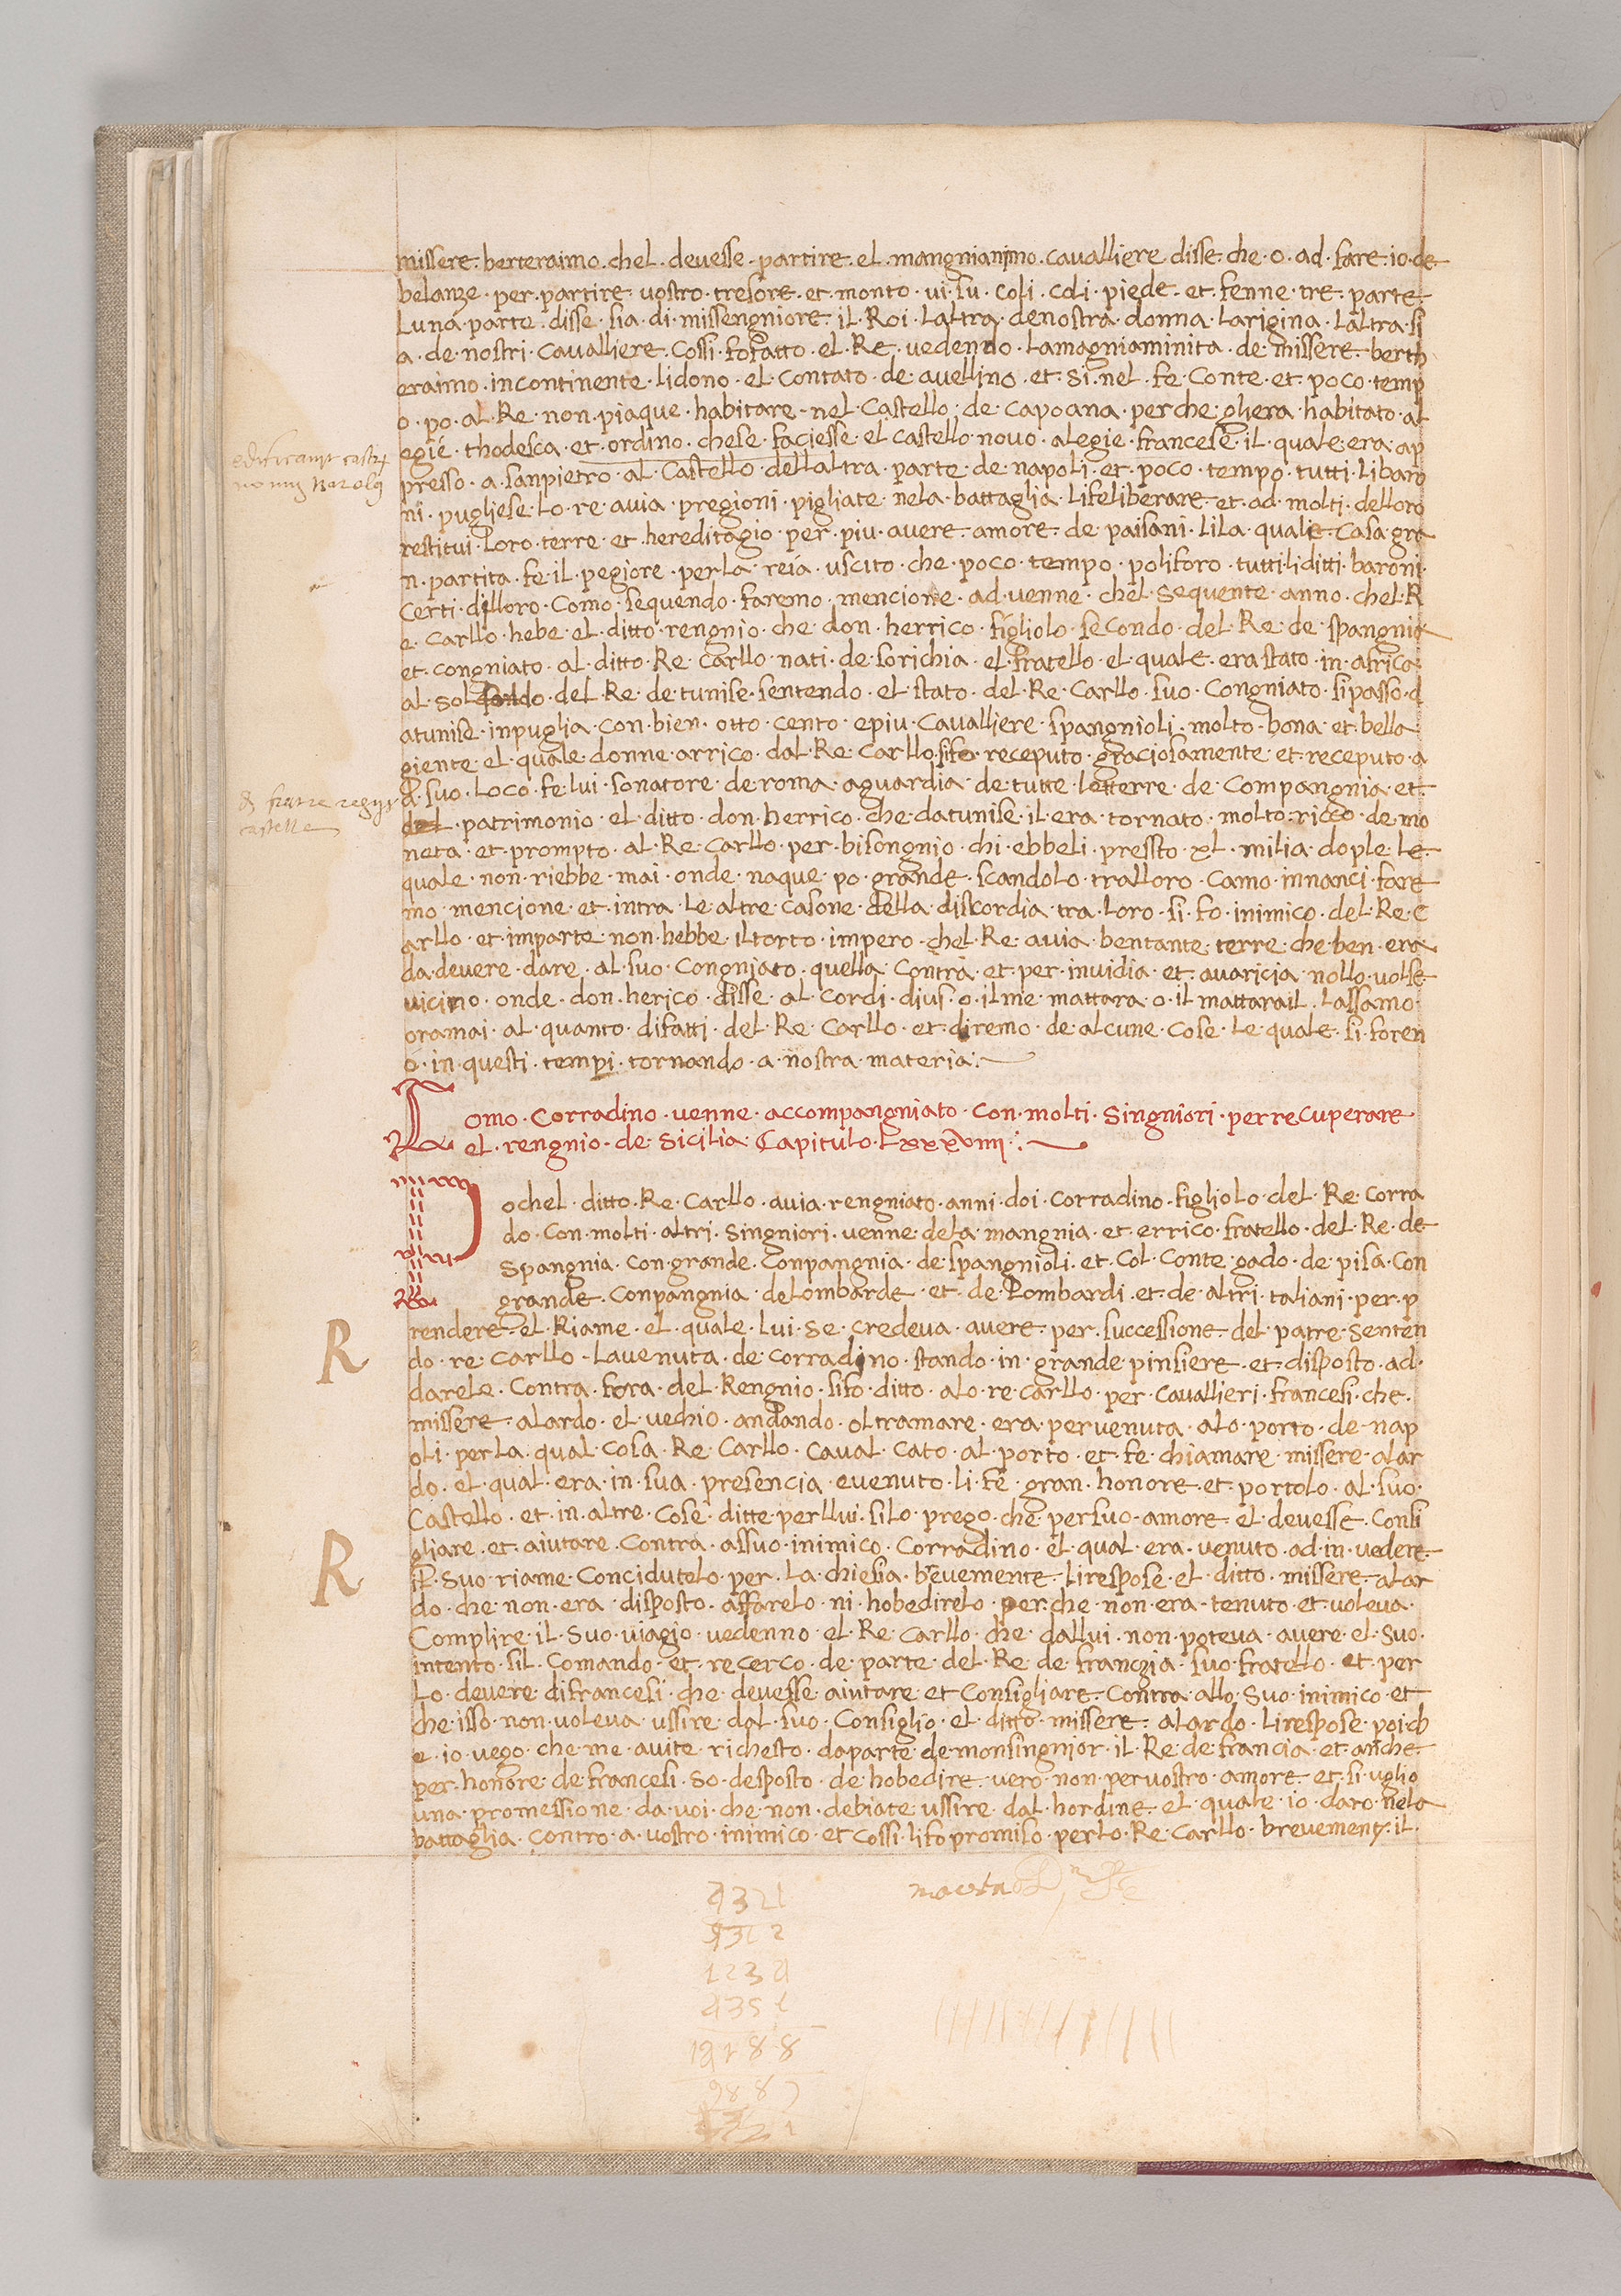 missere · berteraimo · chel · devesse · partire · el · mangnianimo · cavalliere disse · che · o · ad · fare · io · de
belanze · per · partire · vostro · tresore · et · monto · vi · su · coli · coli · piede · et · fenne · tre · parte
Luna · parte · disse · sia · di · missengniore · il · Roi · Laltra · de nostra · donna · Larigina · Laltra · si
a · de · nostri · cavalliere · Cossi · fo fatto · el · Re · vedendo · Lamagniaminita · de · missere · berth
eraimo · incontinente · lidono · el · contato · de avellino · et · si · nel · fe · Conte · et · poco · temp
o · po · al · Re · non · piaque · habitare · nel · Castello · de · capoana · perche · ghera · habitato · al
egie · thodesca · et · ordino · chese · faciesse · el castello · novo · alegie · francese · il · quale · era · ap
presso · a · sanpietro · al · Castello · dellaltra · parte · de · napoli · et · poco · tempo · tutti · Libaro
ni · pugliese · Lo · re · avia · pregioni · pigliate · nela · battaglia · Lifeliberare · et · ad · molti · delloro
restitui · Loro · terre · et · hereditagio · per · piu · avere · amore · de · paisani · Lila · quale · casa · gra
n · partita · fe · il · pegiore · perla · reia · uscito · che · poco · tempo · polifore · tutti · liditti · baroni ·
Certi · dilloro · Como · sequendo · faremo · mencione · ad · venne · chel · sequente · anno · chel · R
e · Carllo · hebe · el · ditto · rengnio · che · don · herrico · figliolo · secondo · del · Re · de · spangnia
et · congniato · al · ditto · Re · carllo · nati · de · sorichia · el · fratello · el · quale · era stato · in · africa
al · sol do · del · Re · de · tunise · sentendo · el · stato · del · Re · Carllo · suo · Congniato · si passo · d
atunise · inpuglia · con · bien · otto · cento · epiu · Cavalliere · spangnioli · molto · bona · et · bella ·
giente · el · quale · donne · arrico · dal · Re · Carllo · sifo · receputo · graciosamente · et · receputo · a
suo · Loco · fe · lui · sonatore · de · roma · aguardia · de · tutte · letterre · de · Compangnia · et
del · patrimonio · el · ditto · don · herrico · che · datunise · il · era · tornato · molto · ricco · de · mo
neta · et · prompto · al · Re · Carllo · per · bisongnio · chi · ebbeli · pressto · xl · milia · dople · le
quale · non · riebbe · mai · onde · naque · po · grande · scandolo · tralloro · Camo · innanci · fare
mo · mencione · et · intra · Le · altre · casone · della · discordia · tra · Loro · si · fo · inimico · del · Re · C
arllo · et · imparte · non · hebbe · iltorto · impero · chel · Re · avia · bentante · terre · che · ben · era
da · devere · dare · al · suo · Congniato · quella · Contra · et · per · invidia · et · avaricia · nollo · volse
vicino · onde · don · herico · disse · al · cordi · dius · o · il me · mattara · o · il · mattarail · Lassamo ·
oramai · al · quanto · difatti · del · Re · Carllo · et · diremo · de alcune · Cose · Le quale · si · foren
o · in · questi · tempi · tornando · a · nostra · materia :
Como · Corradino · venne · accompangniato · con · molti · Singniori · perrecuperare
el · rengnio · de · Sicilia · Capitulo · Lxxxviiii :
Pochel · ditto · Re · Carllo · avia · rengniato · anni · doi · Corradino · figliolo · del · Re · Corra
do · con · molti · altri · singniori · venne · dela · mangnia · et · errico · fratello · del · Re · de
Spangnia · con · grande · conpangnia · de · spangnioli · et · Col · Conte · gado · de · pisa · con
grande · Conpangnia · deLombarde · et · de · Lombardi · et · de · altri · taliani · per · p
R
rendere · el · Riame · el · quale · Lui · se · credeva · avere · per · successione · del · patre · senten
do · re · carllo · Lavenuta · de · corradino · stando · in · grande · pinsiere · et · disposto · ad ·
darele · Contra · fora · del · Rengnio · sifo · ditto · alo · re · carllo · per · cavallieri · francesi · che ·
missere · alardo · el · vechio · andando · oltramare · era · pervenuta · alo · porto · de · nap
oli · perLa · qual · cosa · Re · Carllo · Caval · cato · al · porto · et · fe · chiamare · missere · alar
do · el · qual · era · in · sua · presencia · evenuto · li · fe · gran · honore · et · portolo · al · suo ·
Castello · et · in · altre · Cose · ditte · perllui · silo · prego · che · persuo · amore · el · devesse · Consi
R
gliare · et · aiutare · Contra · assuo · inimico · Corradino · el · qual · era · venuto · ad · in · vedere
il · suo · riame · Concidutelo · per · La · chiesia · brevemente · Lirespose · el · ditto · missere · alar
do · che · non · era · disposto · affarelo · ni · hobedirelo · perche · non · era · tenuto · et · voleva ·
Complire · il · suo · viagio · vedenno · el · Re · Carllo · che · dallui · non · poteva · avere · el · suo ·
intento · sil · Comando · et · recerco · de · parte · del · Re · de · franczia · suo · fratello · et · per
Lo · devere · difrancesi · che · devesse · aiutare · et · Consigliare · Contra · allo · suo · inimico · et
che · isso · non · voleva · ussire · dal · suo · Consiglio · el · ditto · missere · alardo · lirespose · poich
e · io · vego · che · me · avite · richesto · daparte · demonsingnior · il · Re · de · francia · et · anche
per · honore · de · francesi · so · desposto · de · hobedire · vero · non · pervostro · amore · et · si · voglio
una · promessione · da · voi · che · non · debiate · ussire · dal · hordine · el · quale · io · daro · nela
battaglia · contro · a · vostro · inimico · et · cossi · lifo · promiso · perlo · Re · Carllo · brevemente · il ·
4321
1234